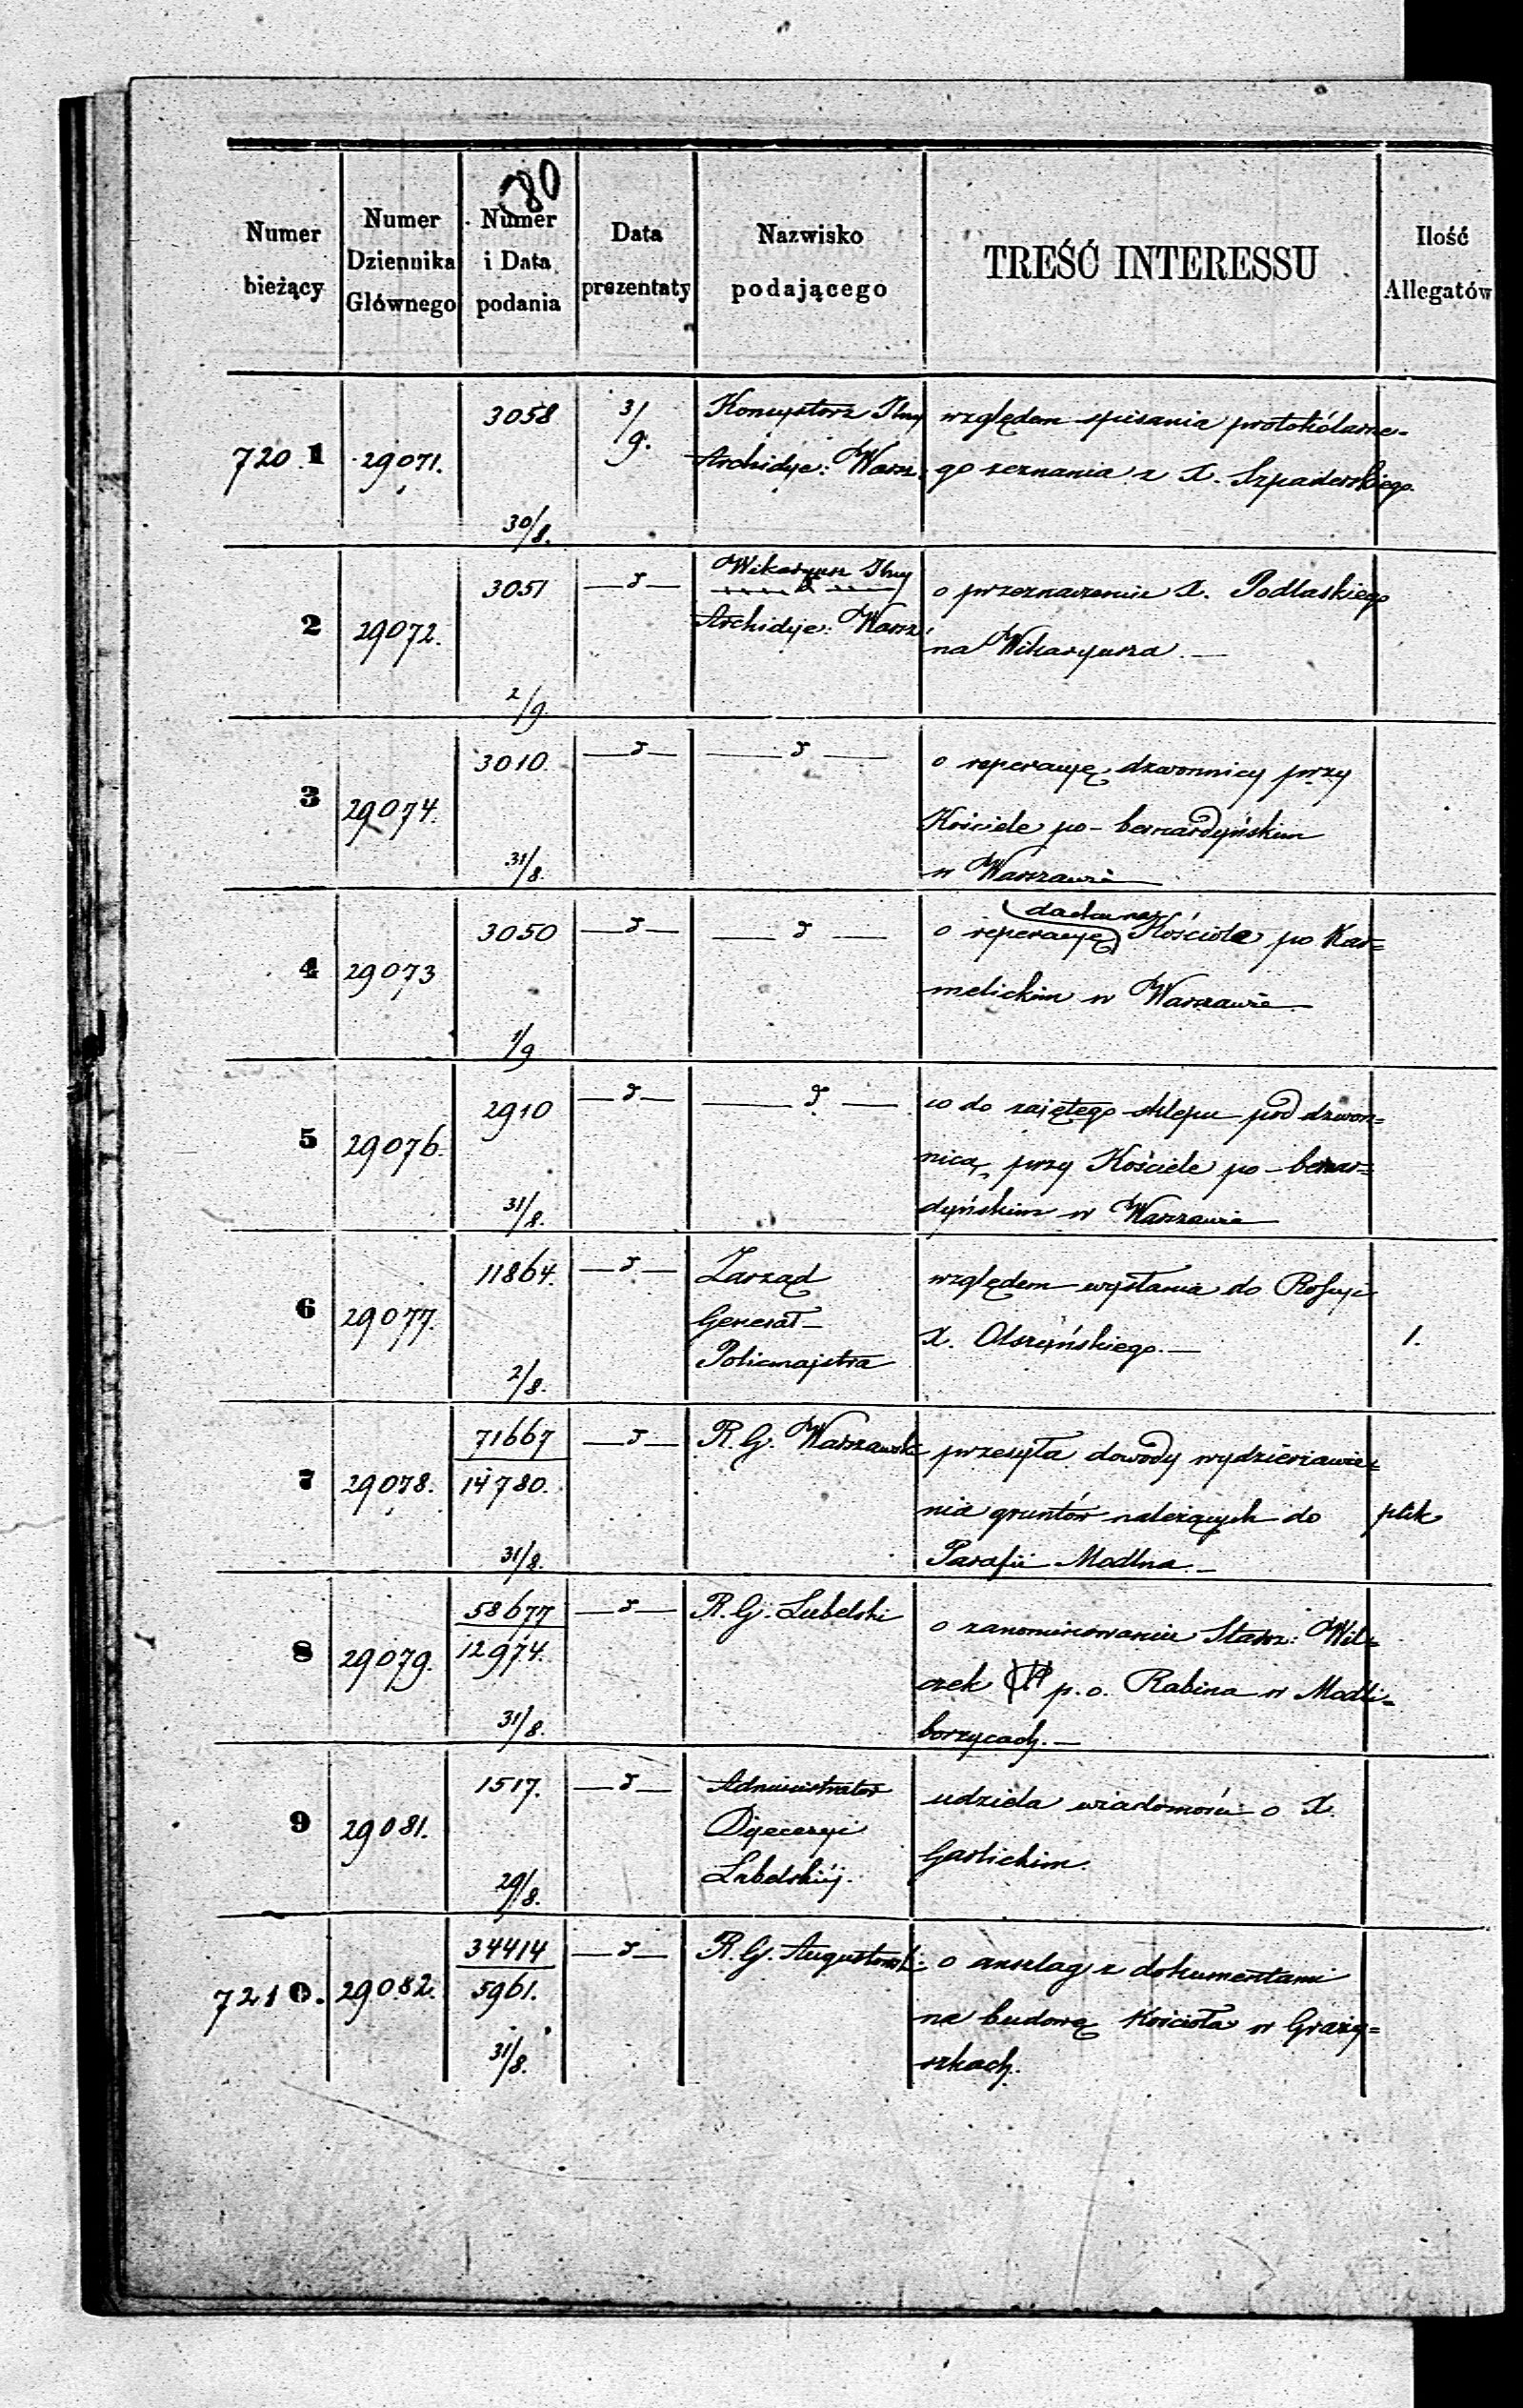 80
Numer
bieżący
Numer
Dziennika
Głównego
Numer
i Data
podania
Data
prezentaty
Nazwisko
podającego
TREŚĆ INTERESSU
Ilość
Allegatów
720.1
29071.
3058
30/8.
3/9.
Konsystorz Jlny
Archidye: Warsz.
względem spisania protokólarne=
go zeznania z X. Szpaderskiego.
2
29072.
3051
2/9.
Wikaryusz Jlny
Archidye: Warsz
o przeznaczenie X. Podlaskiego
na Wikaryusza. —
3
29074.
3010.
31/8.
o reperacyę dzwonnicy przy
Kościele po-bernardyńskim
w Warszawie
4
29073
3050
1/9
dachu na
o reperacyę Kościole po Kar=
melickim w Warszawie
5
29076.
2910
31/8.
co do zajętego sklepu pod dzwon=
nicą przy Kościele po-bernar=
dyńskim w Warszawie
6
29077.
11864.
2/8.
Zarząd
Generał-
Policmajstra
względem wysłania do Rossyi
X. Olszyńskiego. —
1.
7
29078.
71667
14780.
31/8.
R. G. Warszawski
przesyła dowody wydzierżawie=
nia gruntów należących do
Parafii Modlna. —
plik
8
29079.
58677
12974.
31/8.
R. G. Lubelski
o zanominowanie Starz: Wil=
czek p. o. Rabina w Modli=
borzycach. —
9
29081.
1517.
29/8.
Administrator
Dyecezyi
Lubelskiéj.
udziela wiadomości o X.
Garlickim.
7210.
29082.
34414
5961.
31/8.
R. G. Augustowski
o anszlag z dokumentami
na budowę Kościoła w Graży=
szkach.